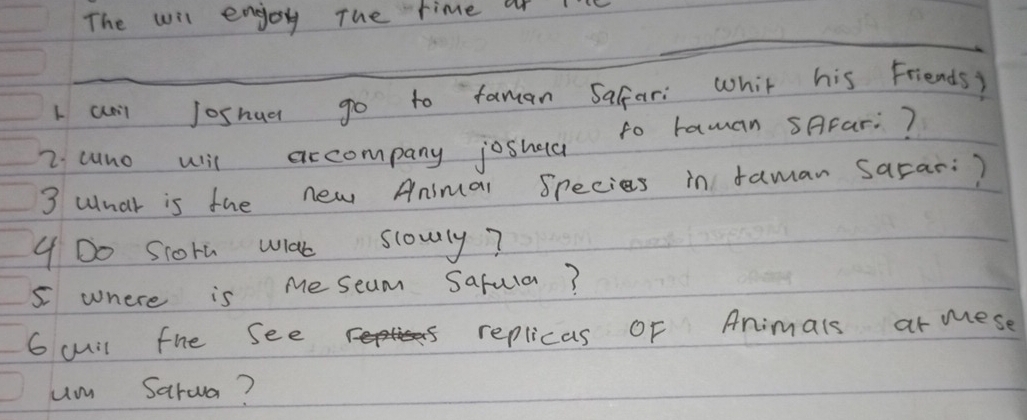 The wil enjoy The time at The
1. Will Joshua go to taman Safari whit his Friends?
2. who wil accompany joshua to taman SAFari?
3 what is the new Animal Species in taman Safari?
4 Do Sloth walk slowly?
5. where is Meseum Satwa?
6 wil the see replicas OF Animals at Mese
um Satwa?